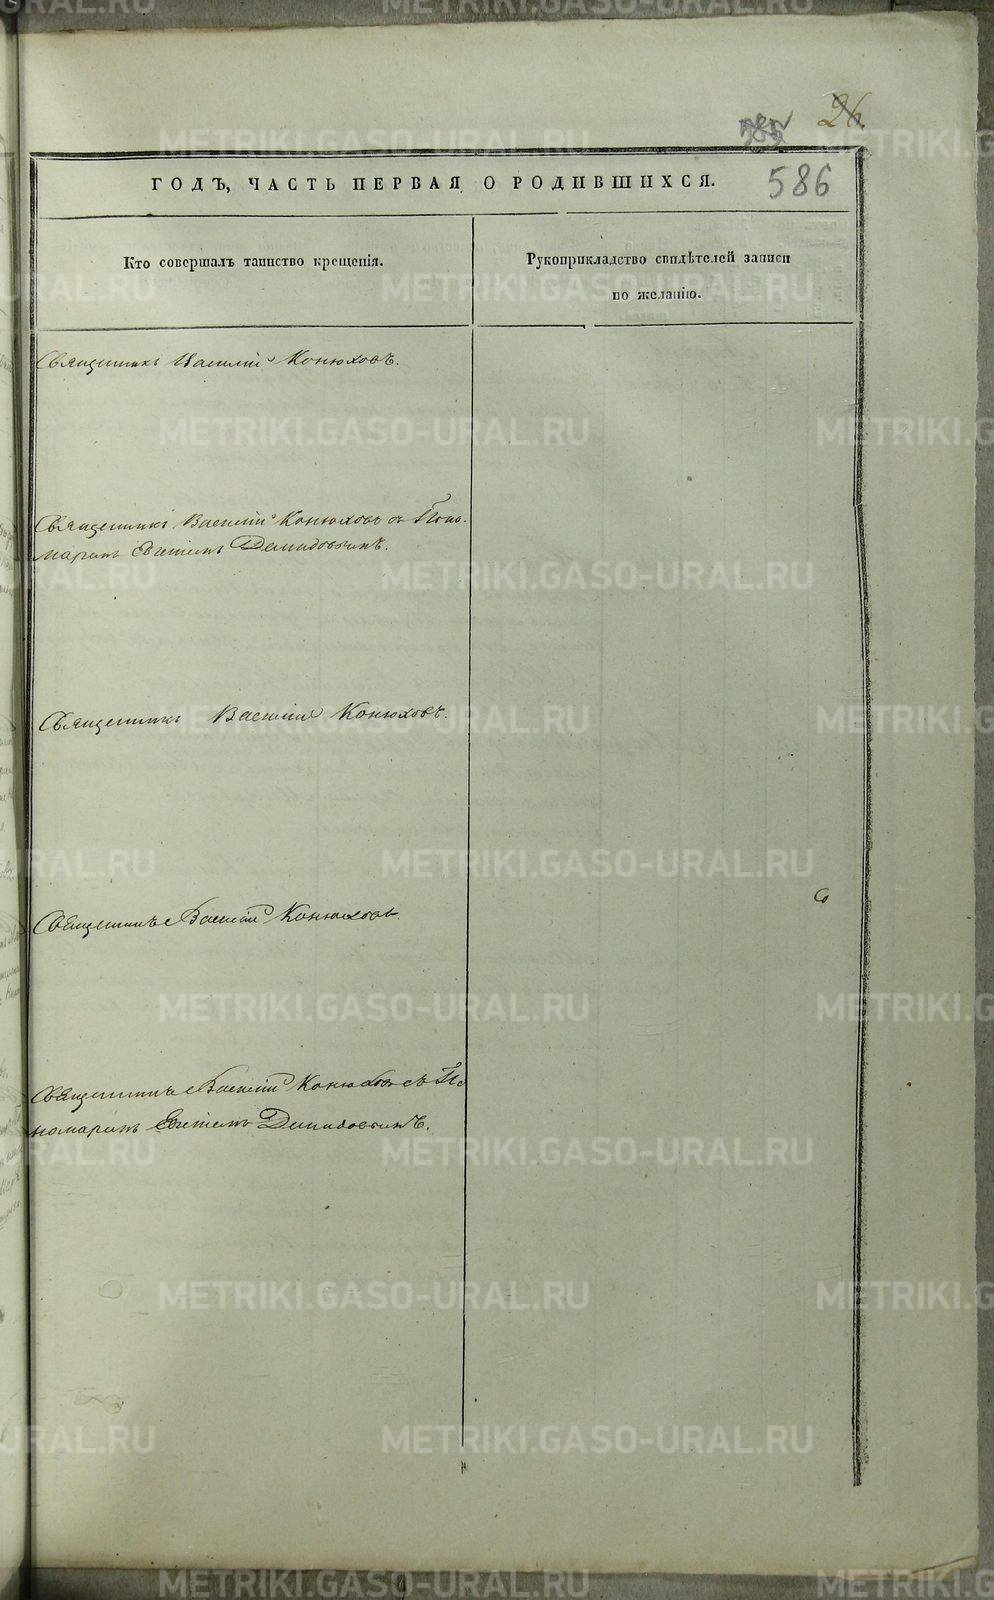 26
585
586
ГОДЪ, ЧАСТЬ ПЕРВАЯ О РОДИВШИХСЯ.
Кто совершалъ таинство крещенія.
Рукоприкладство свидѣтелей записи
по желанію.
Священникъ Василій Конюховъ.
Священникъ Василій Конюховъ съ Поно-
маремъ Евгеніемъ Демидовскимъ.
Священникъ Василій Конюховъ.
Священникъ Василій Конюховъ
Священникъ Василій Конюховъ съ По
номаремъ Евгеніемъ Демидовскимъ.
METRIKI.GASO-URAL.RU